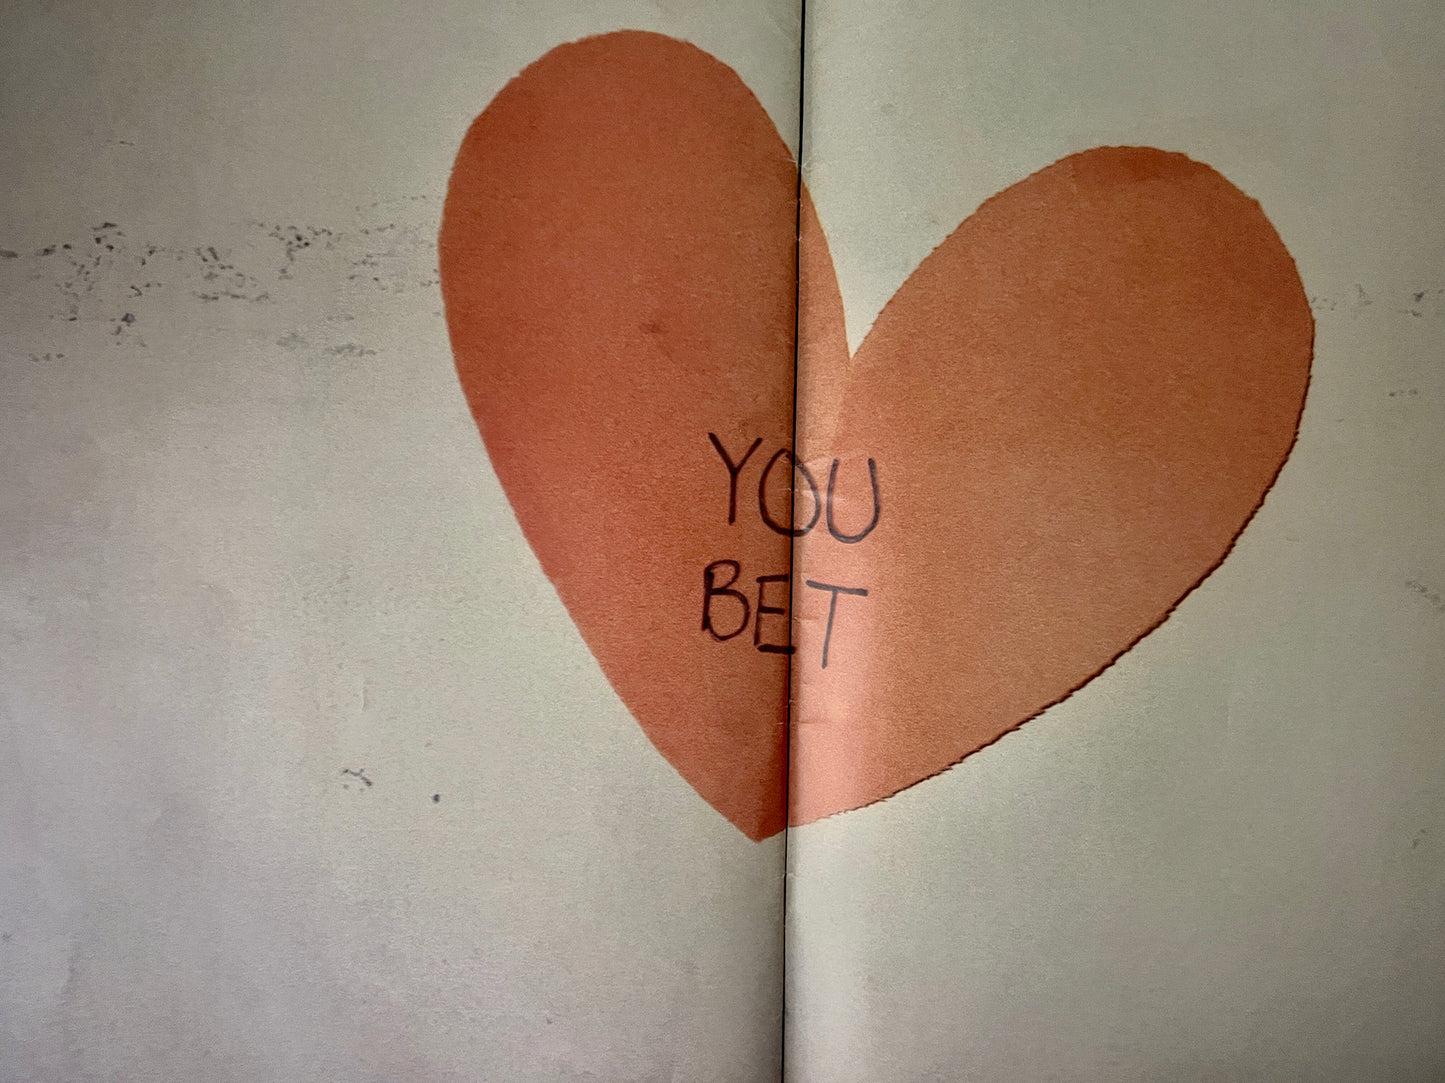 YOU
BET